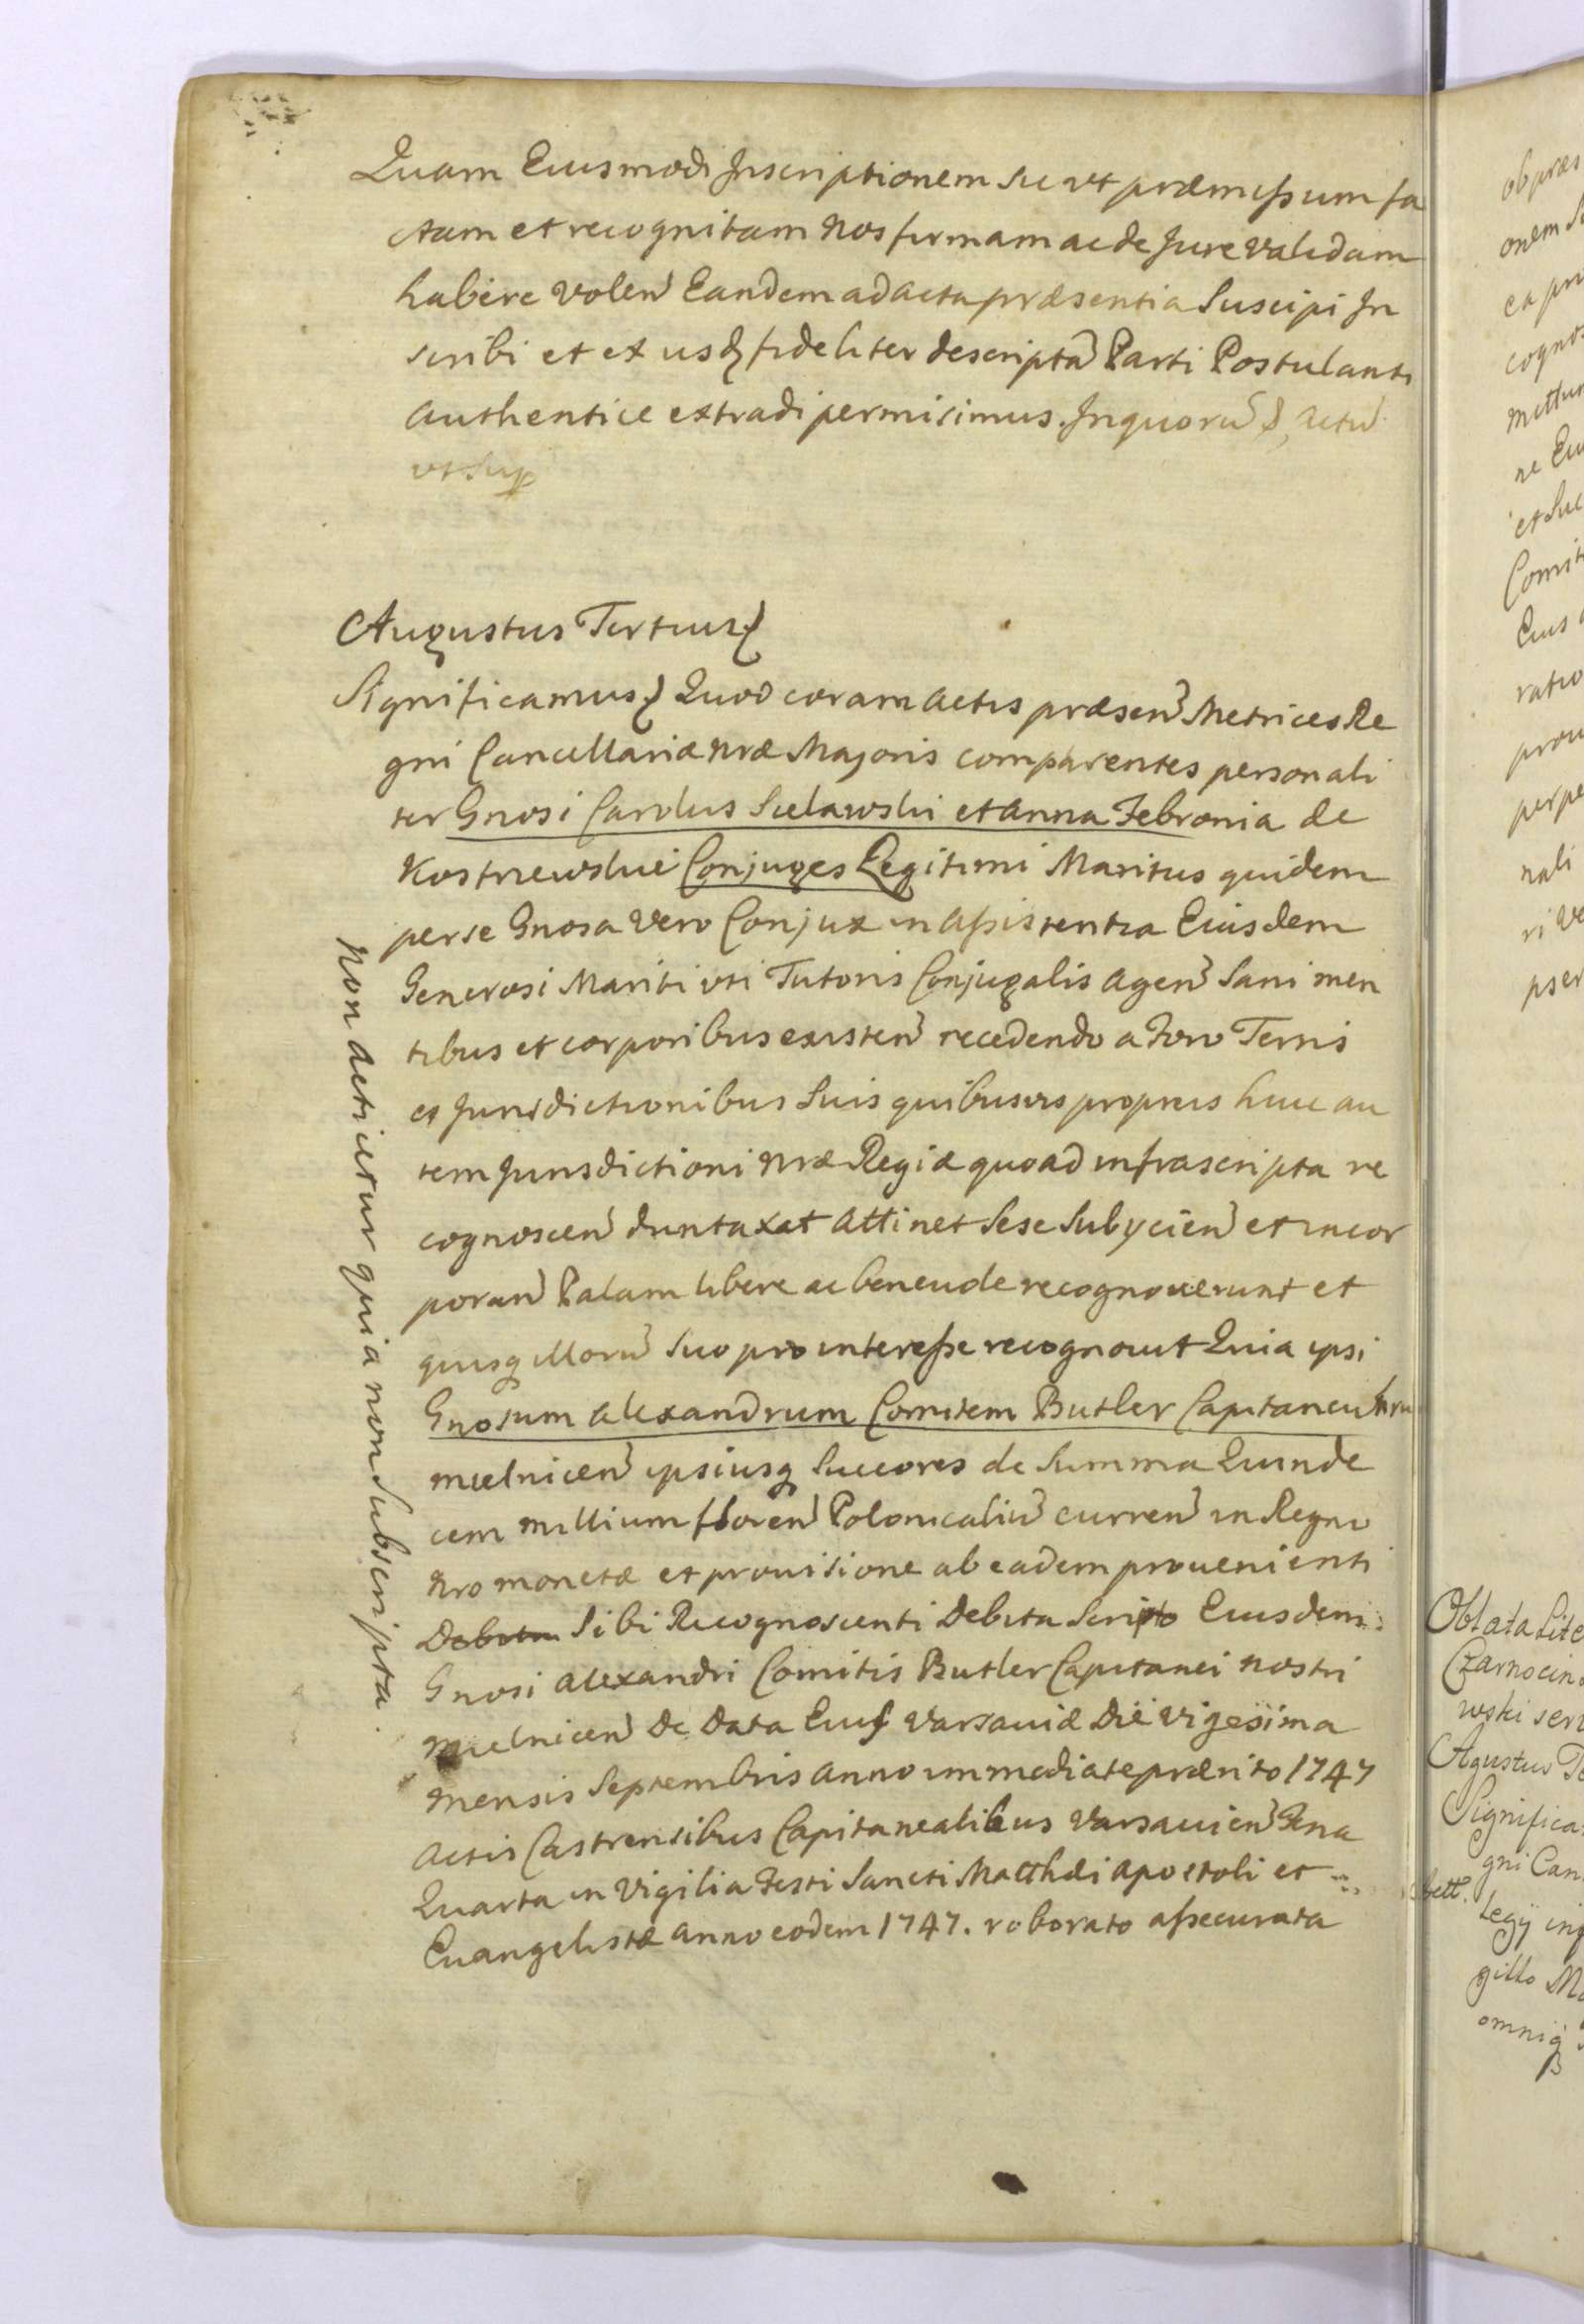 Quam Eiusmodi Inscriptionem sic ut præmissum fa
ctam et recognitam nos firmam ac de Jure validam
habere volen Eandem ad acta præsentia Suscipi In
scribi et ex iisdẽ fideliter descriptã Parti Postulanti
authentice extradi permisimus. In quorũ &, actũ
ut Sup
Augustus Tertius &
Significamus & Quod coram actis præsen Metrices Re
gni Cancellariæ nræ Majoris comparentes personali
ter Gnosi Carolus Sielawski et Anna Febronia de
Kostrzewskie Conjuges Legitimi Maritus quidem
per se Gnosa vero Conjux in assistentia Eiusdem
Generosi Mariti uti Tutoris Conjugalis agen Sani men
tibus et corporibus existen recedendo a Foro Terris
et Jurisdictionibus Suis quibusvis propriis huic au
tem Jurisdictioni nræ Regiæ quoad infrascripta re
cognoscen duntaxat attinet Sese Subycien et incor
poran Palam libere ac benevole recognoverunt et
quisq illorũ Suo pro interesse recognovit Quia ipsi
Gnosum Alexandrum Comitem Butler Capitaneũ nrũ
mielnicen ipsiusq Succores de Summa Quinde
cem millium floren Polonicaliũ curren in Regno
nro monetæ et provisione ab eadem provenienti
Debita Sibi Recognoscenti Debita Scripto Eiusdem
Gnosi Alexandri Comitis Butler Capitanei nostri
mielnicen De Data Eius Varsaviæ Die vigesima
mensis Septembris anno immediate præterito 1747
actis Castrensibus Capitanealibus Varsavien Feria
Quarta in Vigilia Festi Sancti Matthæi Apostoli et
Evangelistæ anno eodem 1747. roborato assecurata
non acticetur quia non Subscripta.
ob præs
onem
ea pri
cognos
mittun
ne Eiu
et Suc
Comit
Eius
ratio
prov
perpe
nali
ri ve
pser
Oblata Lite
Czarnocin
wski serv
Agustus Te
Significa
gni Can
legÿ ing
gillo Ma
omniq